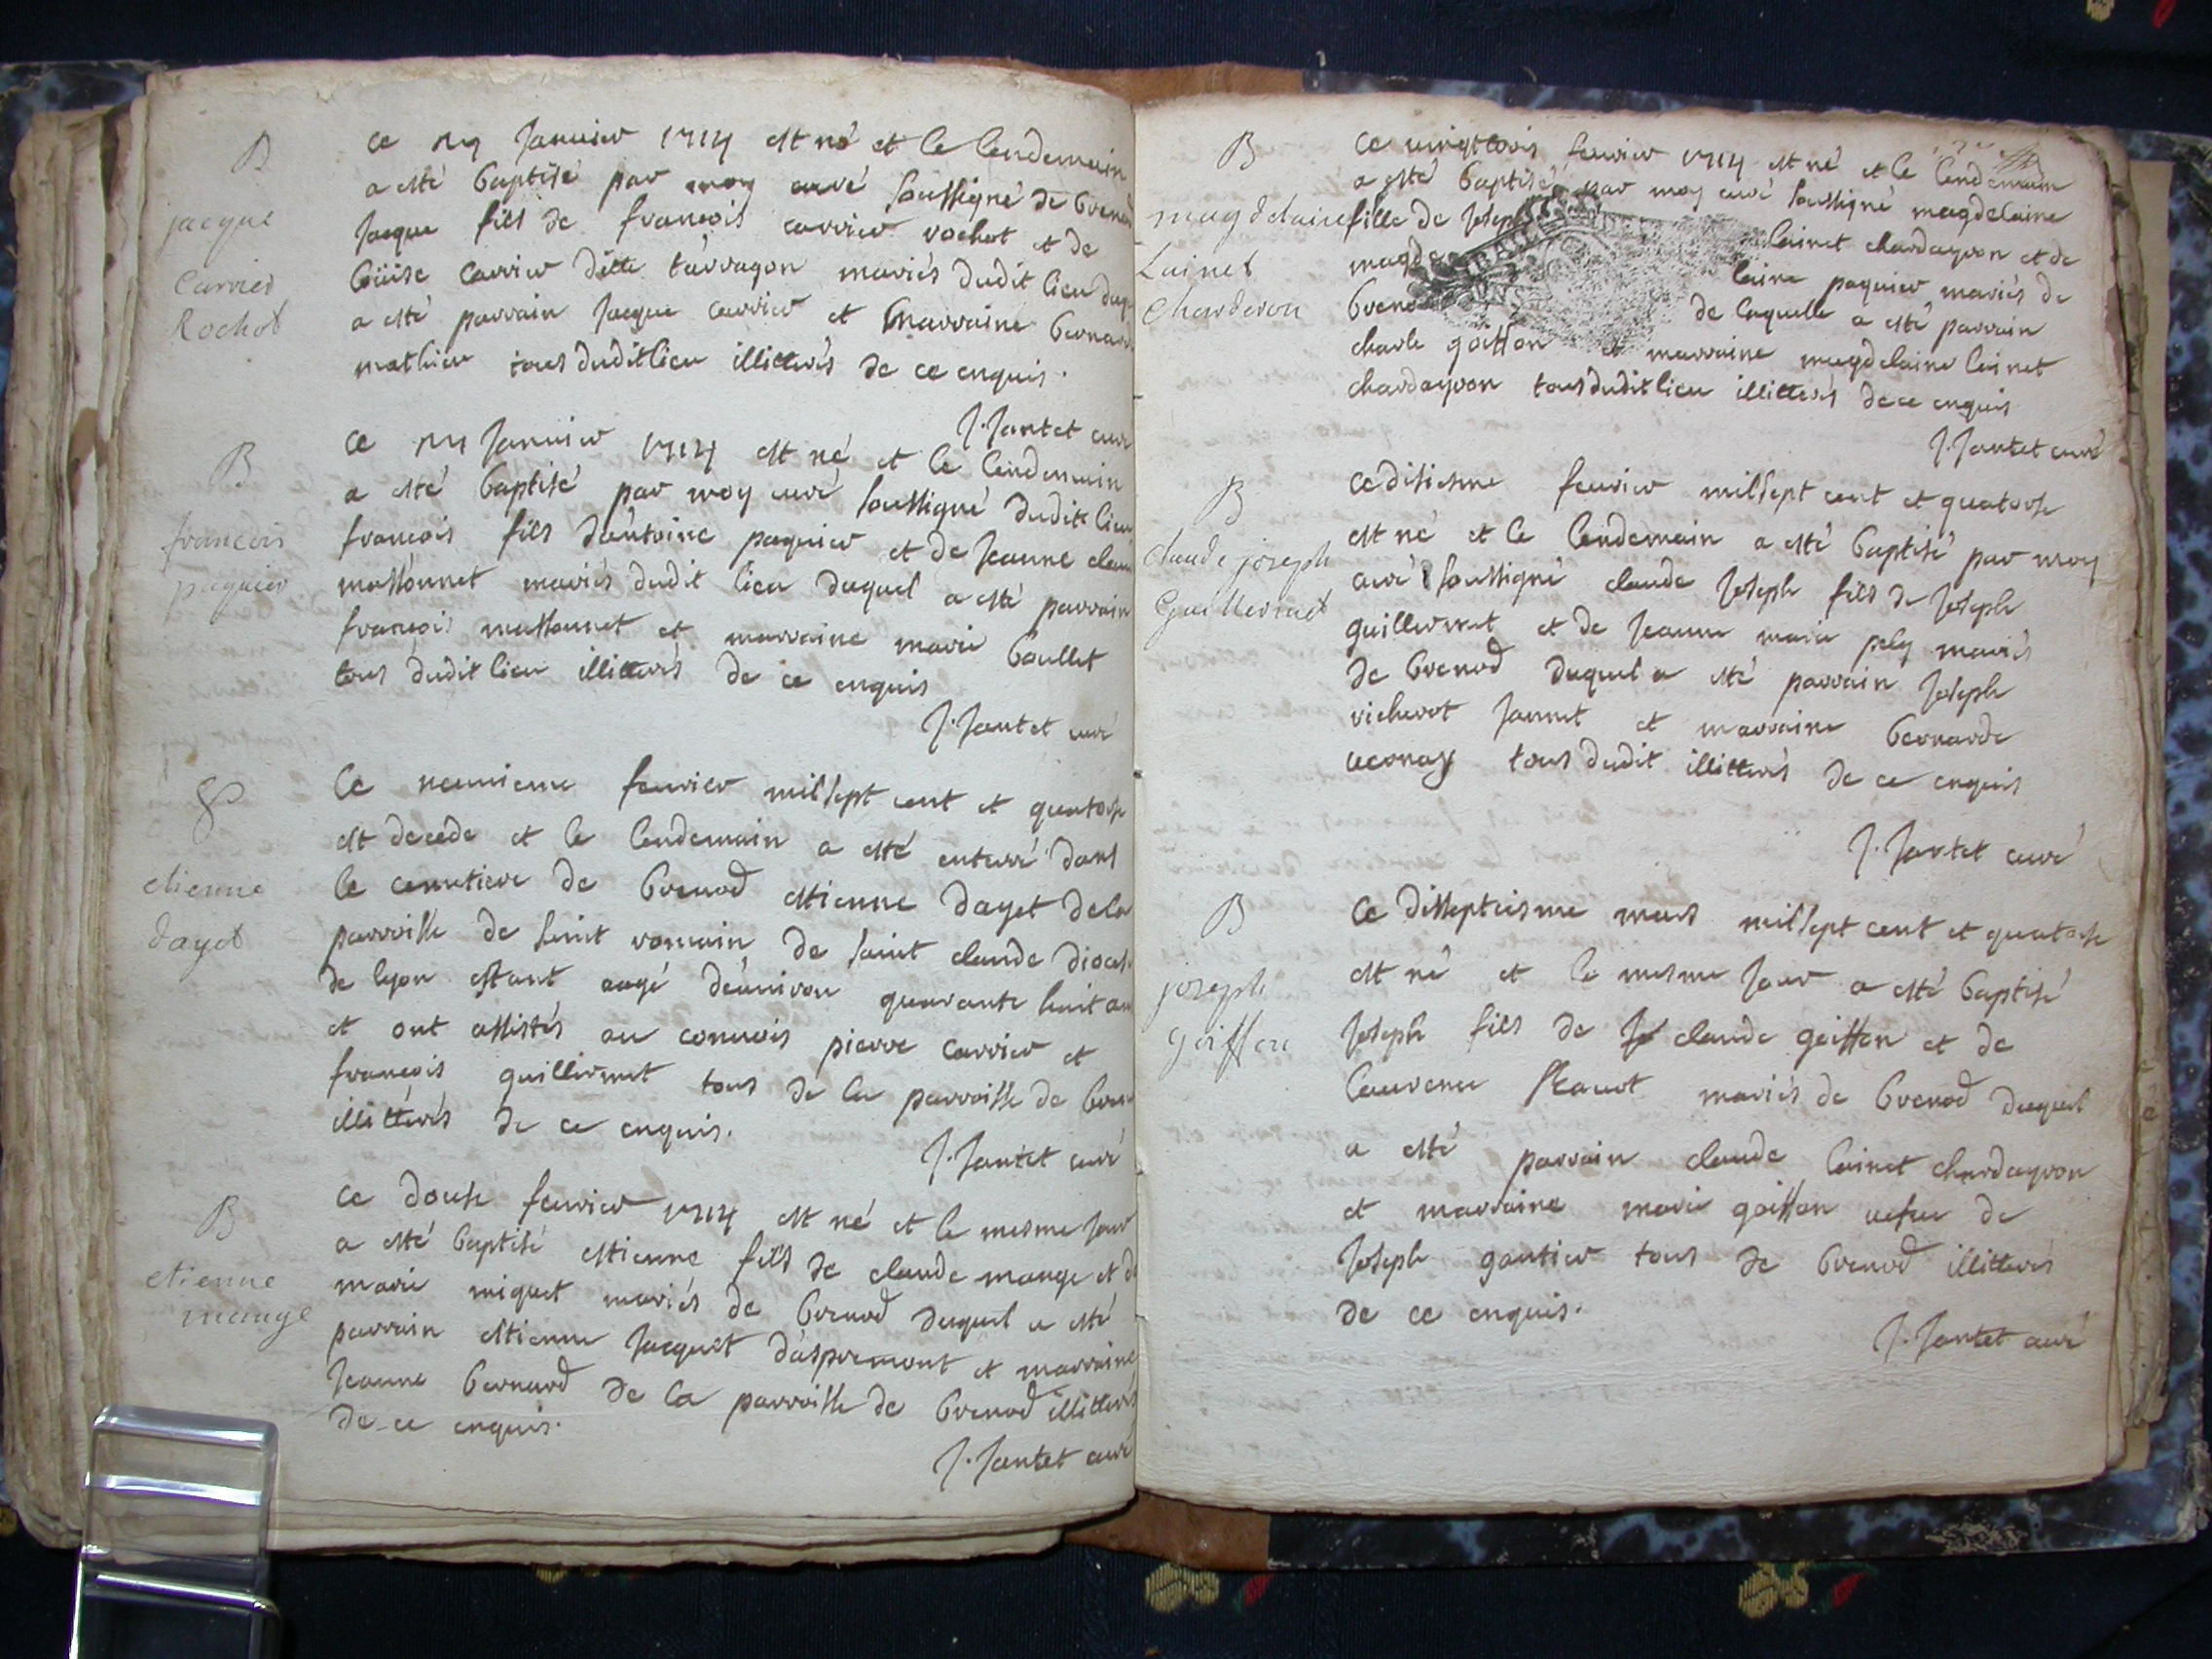 B
jacque
Carrier
Rochet
ce Janvier 1714 est né et le lendemain
a esté baptisé par moy curé soussigné de brenod
Jacque fils de francois carrier rochet et de
loüise carrier ditte tarragon mariés dudit lieu duquel
a esté parrain Jacque carrier et marraine bernard
mathieu tous dudit lieu illitterés de ce enquis.
J. Jantet curé
B
francois
paquier
ce Janvier 1714 est né et le lendemain
a esté baptisé par moy curé soussigné dudit lieu
francois fils d'antoine paquier et de Jeanne claud
massonnet mariés dudit lieu duquel a esté parrain
francois massonnet et marraine marie boullet
tous dudit lieu illitterés de ce enquis
J. Jantet curé
etienne
dayet
Ce neuuieme feurier mil sept cent et quatorse
est decede et le lendemain a esté enterré dans
le cemetiere de brenod estienne dayet de la
parroisse de saint romain de saint claude diocese
de lyon estant aagé d'enuiron quarante huit ans
et ont assistés au conuois pierre carrier et
francois guillermet tous de la parroisse de bren
illitterés de ce enquis.
J. Jantet curé
B
etienne
mange
ce douse feurier 1714 est né et le mesme jour
a esté baptisé estienne fils de claude mange et de
marie miquet mariés de brenod duquel a esté
parrain estienne Jacquet d'aspremont et marraine
Jeanne bernard de la parroisse de brenod illitterés
de ce enquis.
J. Jantet curé
B
magdelaine
Lainet
Charderon
ce uingtrois feurier 1714 est né et le lendemain
a esté baptisé par moy curé soussigné magdelaine
fille de Joseph lainet chardayron et de
magde laine paquier mariés de
breno de laquelle a esté parrain
charle goiffon et marraine magdelaine lainet
chardayron tous dudit lieu illitterés de ce enquis
J. Jantet curé
B
claude joseph
Guillermet
ce disiesme feurier mil sept cent et quatorse
est né et le lendemain a esté baptisé par moy
curé soussigné claude Joseph fils de Joseph
guillermet et de Jeanne marie pely mariés
de brenod duquel a esté parrain Joseph
richerot Jannet et marraine bernarde
uernay tous dudit illitterés de ce enquis
J. Jantet curé
B
joseph
goiffon
Ce disseptiesme mars mil sept cent et quatorse
est né et le mesme jour a esté baptisé
Joseph fils de claude goiffon et de
laurence mariés de brenod duquel
a esté parrain claude lainet chardayron
et marraine marie goiffon uefue de
Joseph gautier tous de brenod illitterés
de ce enquis.
J. Jantet curé